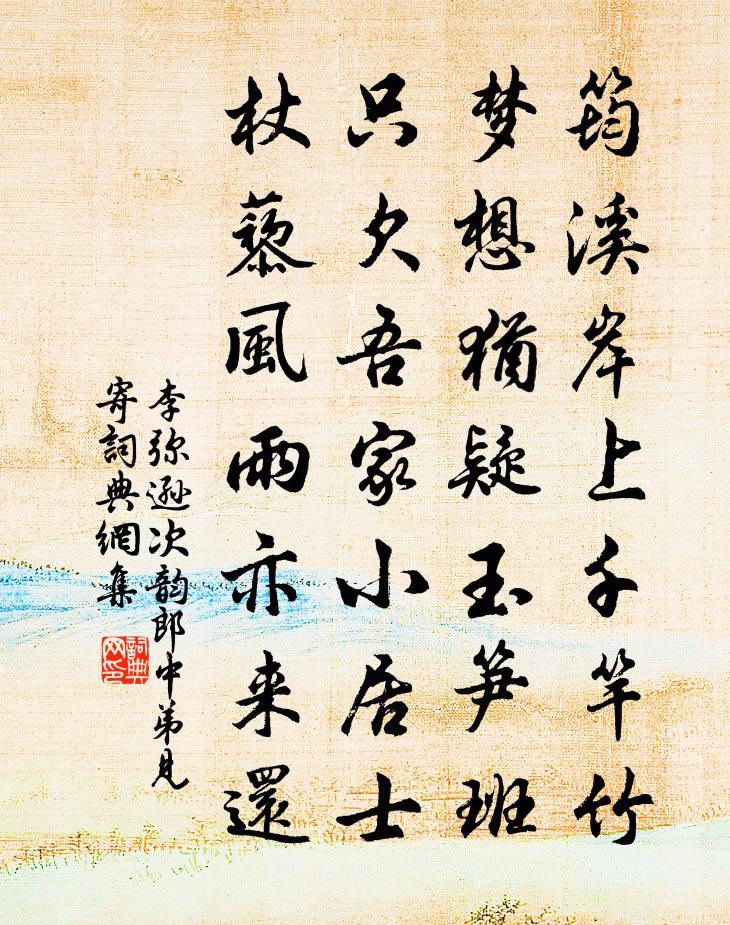 筠溪岸上千竿竹
梦想猶疑玉笋班
只欠吾家小居士
杖藜風雨亦来還
李弥遜次韵郎中弟見
寄詞典網集
詞典
网印